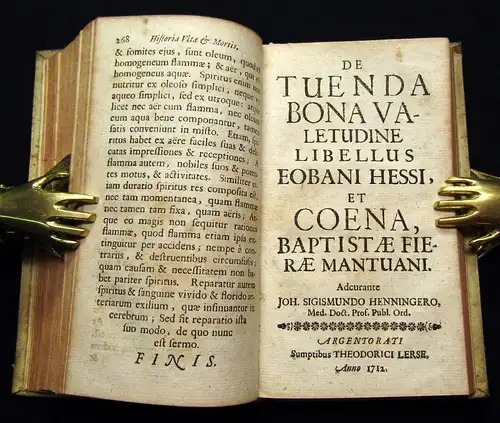 268 Historia Vitæ & Mortis.
& fomites ejus, sunt oleum, quod est
homogeneum flammæ; & aër, qui est
homogeneus aquæ. Spiritus enim non
nutritur ex oleoso simplici, neque ex
aqueo simplici, sed ex utroque: atque
licet nec aër cum flamma, nec oleum
cum aqua bene componantur, tamen
satis conveniunt in misto. Etiam, spi-
ritus habet ex aëre faciles suas & deli-
catas impressiones & receptiones; à
flamma autem, nobiles suos & poten-
tes motus, & activitates. Similiter et-
iam duratio spiritus res composita est,
nec tam momentanea, quam flammæ,
nec tamen tam fixa, quam aëris; At-
que eo magis non sequitur rationem
flammæ, quod flamma etiam ipsa ex-
tinguitur per accidens; nempe à con-
trariis, & destruentibus circumfusis;
quam causam & necessitatem non ha-
bet pariter spiritus. Reparatur autem
spiritus & sanguine vivido & florido ar-
teriarum exilium, quæ insinuantur in
cerebrum; Sed sit reparatio ista
suo modo, de quo nunc
est sermo.
FINIS.
DE
TUENDA
BONA VA-
LETUDINE
LIBELLUS
EOBANI HESSI,
ET
COENA,
BAPTISTÆ FIE-
RÆ MANTUANI.
Adcurante
JOH. SIGISMUNDO HENNINGERO,
Med. Doct. Prof. Publ. Ord.
ARGENTORATI
Sumptibus THEODORICI LERSE,
Anno 1712.